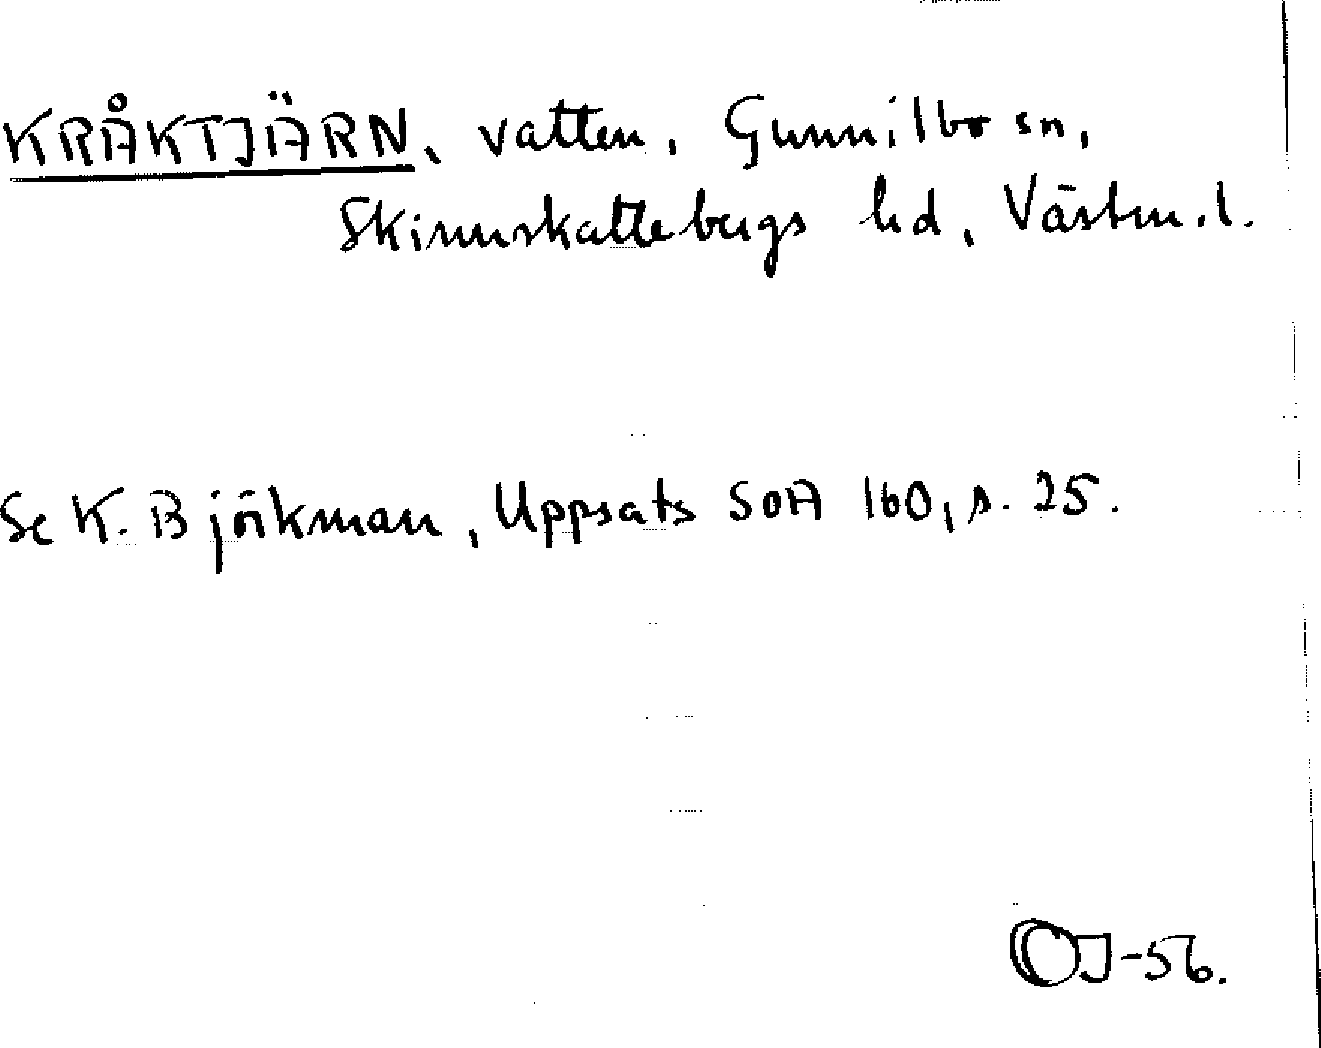 KRÅKTJÄRN, vatten, Gunnilbo sn,
Skinnskattebergs hd, Västm.l.
Se K. Björkman, Uppsats SOA 160, s. 25.
OJ-56.